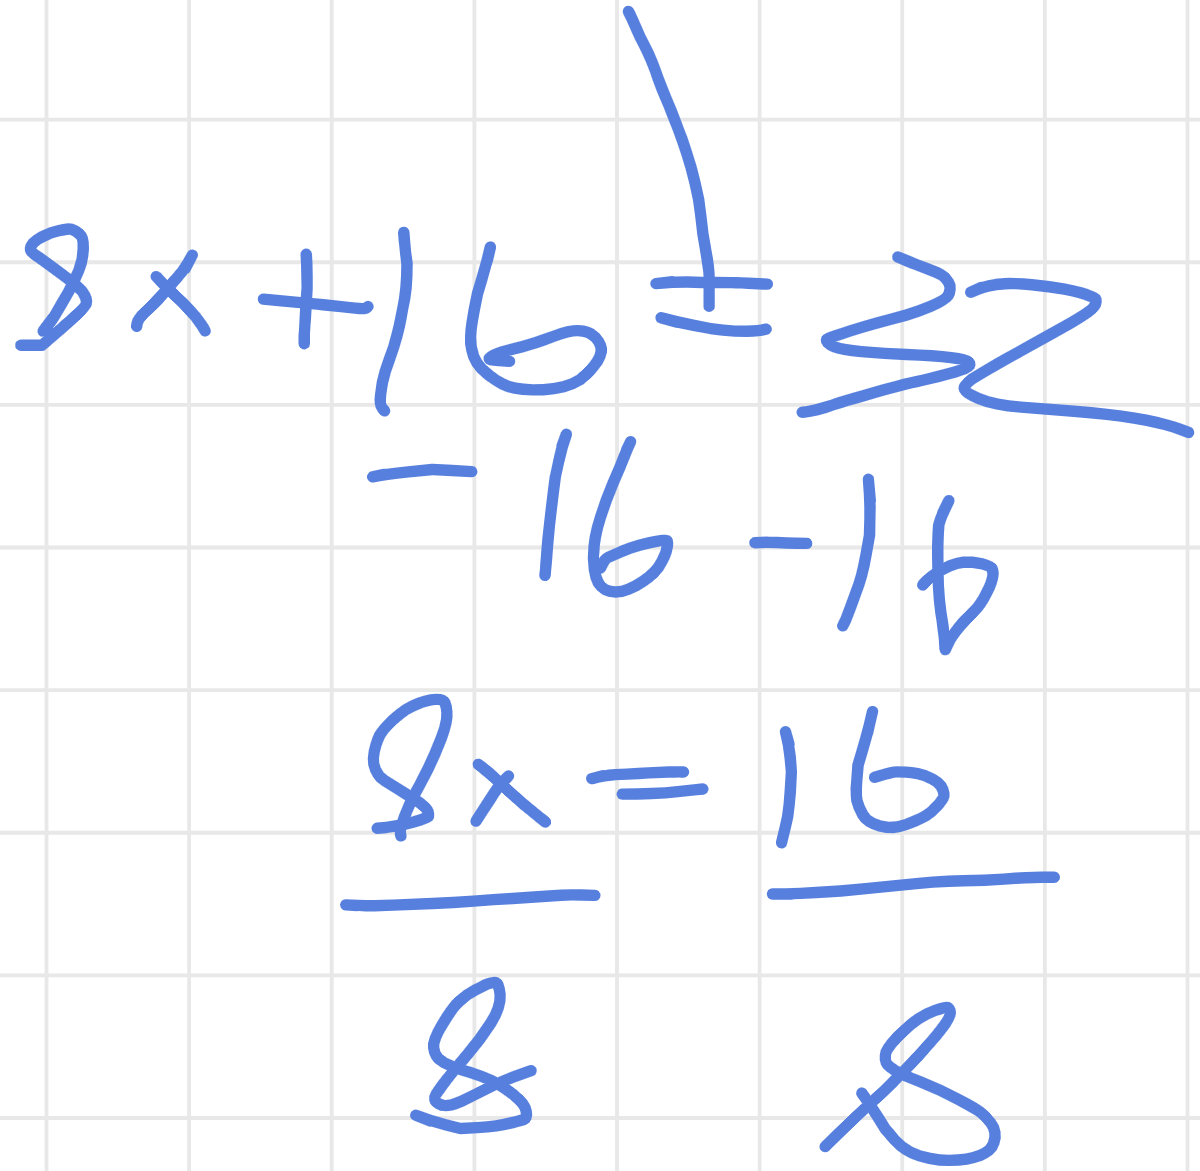 8x + 16 = 32
- 16 - 16
8x = 16
8 8